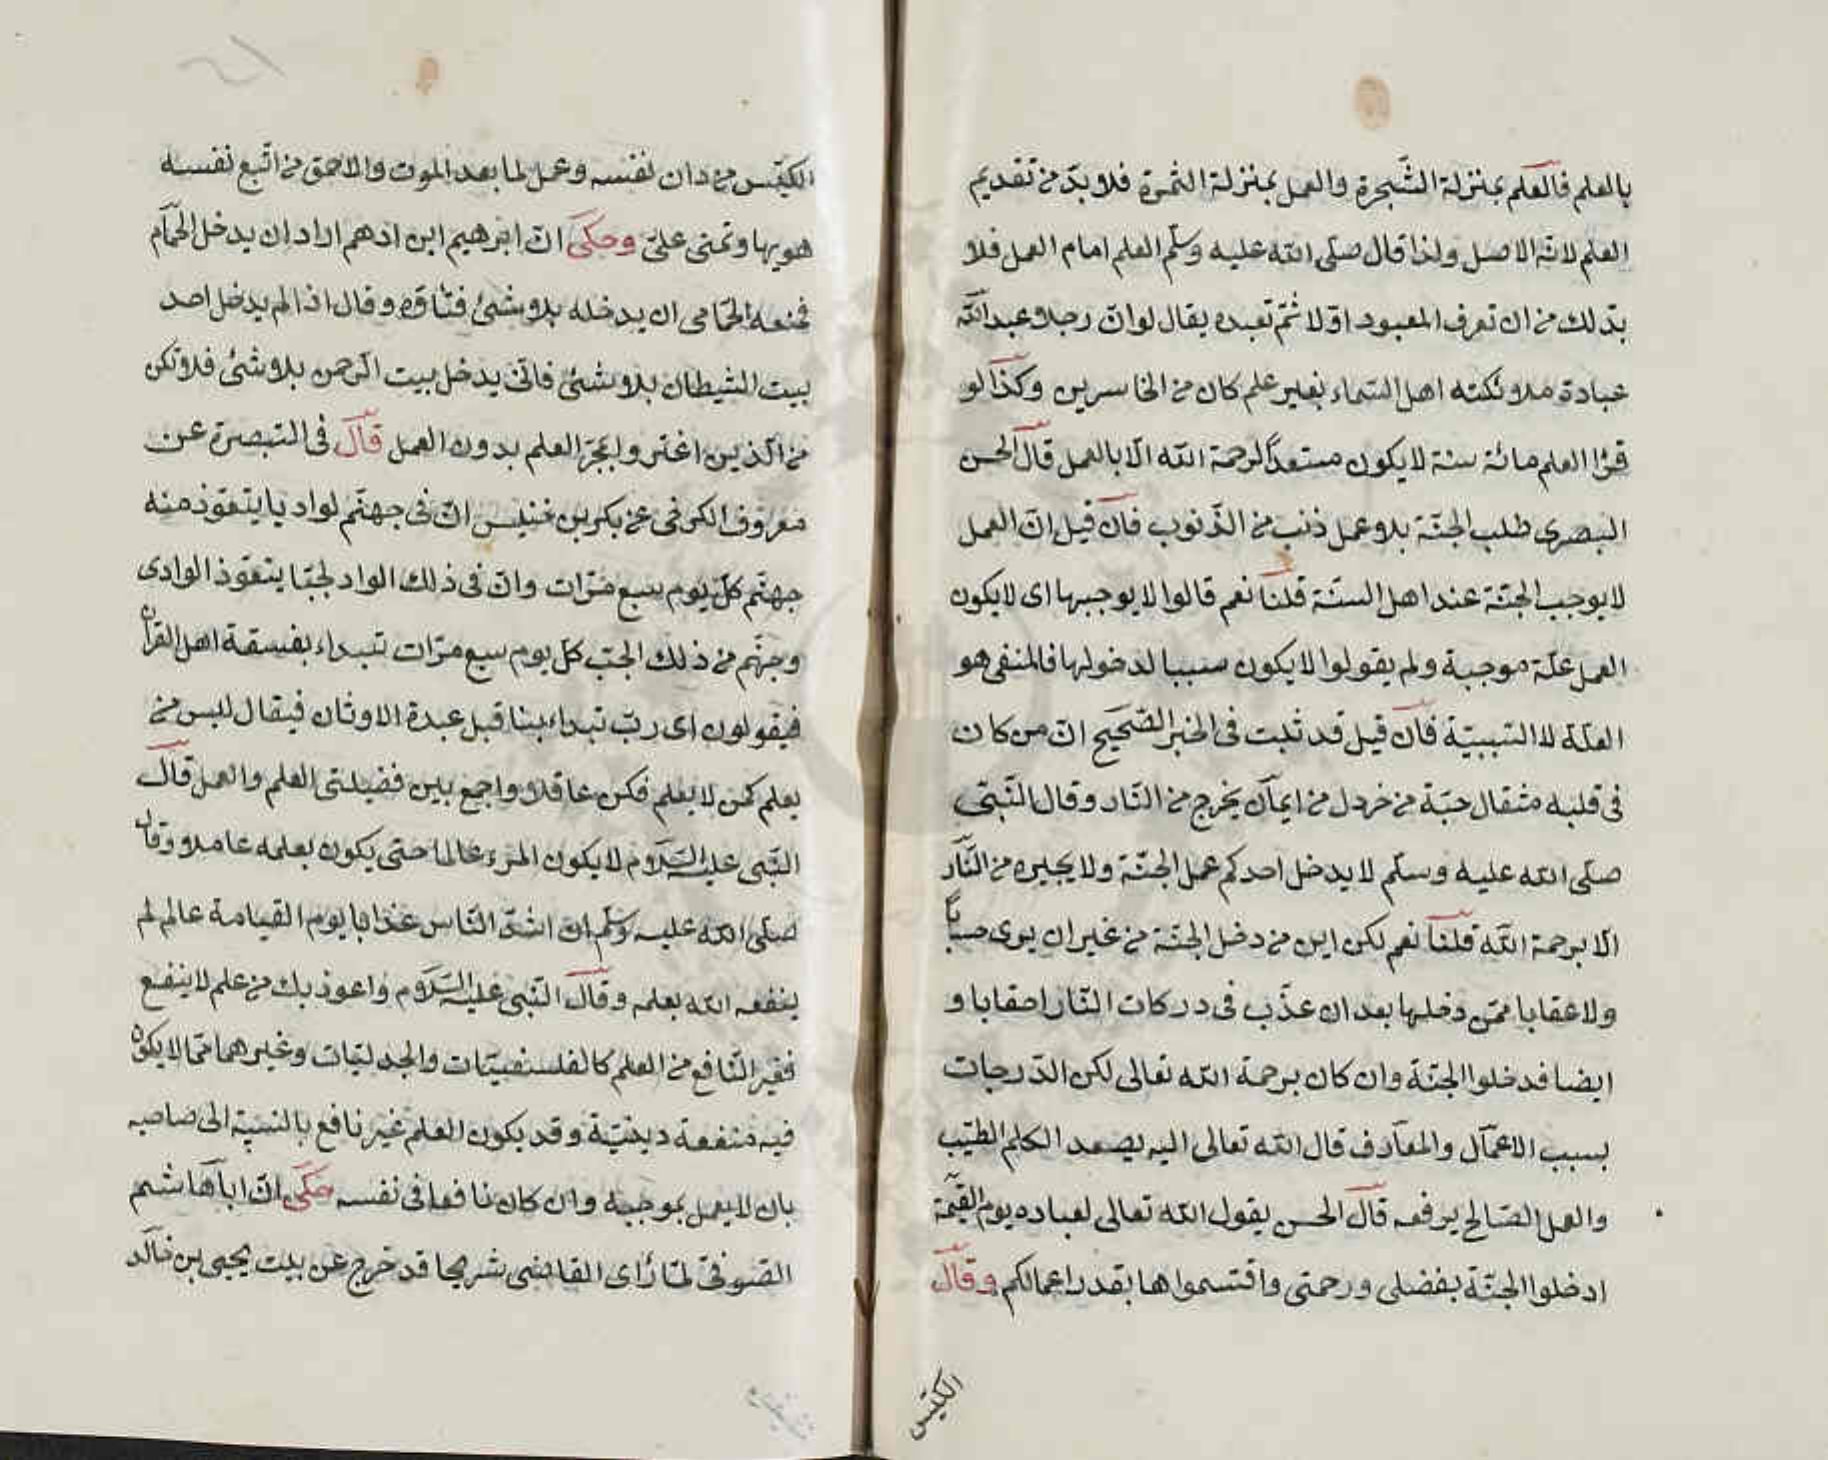 بالعلم فالعلم بمنزلة الشّجرة والعمل بمنزلة الثمرة فلا بدّ من تقديم
العلم لانّه الاصل ولذا قال صلّى الله عليه وسلّم العلم امام العمل فلا
بدّ لك من ان تعرف المعبود اوّلا ثمّ تعبده يقال لو انّ رجلا عبد الله
عبادة ملائكته اهل السّماء بغير علم كان من الخاسرين وكذا لو
قرا العلم مائة سنة لا يكون مستعدّا لرحمة الله الّا بالعمل قال الحسن
البصرى طلب الجنّة بلا عمل ذنب من الذّنوب فان قيل انّ العمل
لا يوجب الجنّة عند اهل السنّة قلنا نعم قالوا لا يوجبها اى لا يكون
العمل علّة موجبة ولم يقولوا لا يكون سببا لدخولها فالمنفى هو
العلّة لا السّببيّة فان قيل قد ثبت فى الخبر الصّحيح انّ من كان
فى قلبه مثقال حبّة من خردل من ايمان يخرج من النّار وقال النّبىّ
صلّى الله عليه وسلّم لا يدخل احدكم عمل الجنّة ولا يجيره من النّار
الّا برحمة الله قلنا نعم لكن اين من دخل الجنّة من غير ان يرى حسابا
ولا عقابا ممّن دخلها بعد ان عذّب فى دركات النّار احقابا و
ايضا فدخلوا الجنّة وان كان برحمة الله تعالى لكن الدّرجات
بسبب الاعمال والمعارف قال الله تعالى اليه يصعد الكلم الطّيّب
والعمل الصّالح يرفعه قال الحسن يقول الله تعالى لعباده يوم القيمة
ادخلوا الجنّة بفضلى ورحمتى واقتسموها بقدر اعمالكم وقال
الكيّس
الكيّس من دان نفسه وعمل لما بعد الموت والاحمق من اتّبع نفسه
هويها وتمنى على وحكى انّ ابرهيم ابن ادهم اراد ان يدخل الحمّام
فمنعه الحمّامى ان يدخله بلا شئ فتاوّه وقال اذا لم يدخل احد
بيت الشيطان بلا شئ فانّى يدخل بيت الرّحمن بلا شئ فلا تكن
من الّذين اغترّوا بمجرّد العلم بدون العمل قال فى التبصرة عن
معروف الكرخى عن بكر بن خنيس انّ فى جهنّم لواديا يتعوّذ منه
جهنّم كلّ يوم سبع مرّات وانّ فى ذلك الواد لجبّا يتعوّذ الوادى
وجهنّم من ذلك الجبّ كلّ يوم سبع مرّات تبداء بفسقة اهل القران
فيقولون اى ربّ تبداء بنا قبل عبدة الاوثان فيقال ليس من
يعلم كمن لا يعلم فكن عاقلا واجمع بين فضيلتى العلم والعمل قال
النّبى عليه السّلام لا يكون المرء عالما حتى يكون بعلمه عاملا وقال
صلّى الله عليه وسلّم ان اشدّ النّاس عذابا يوم القيامة عالم لم
ينفعه الله بعلمه وقال النّبى عليه السّلام واعوذ بك من علم لا ينفع
فغير النّافع من العلم كالفلسفيّات والجدليّات وغيرهما ممّا لا يكون
فيه منفعة دينيّة وقد يكون العلم غير نافع بالنسبة الى صاحبه
بان لا يعمل بموجبه وان كان نافعا فى نفسه حكى انّ ابا هاشم
الصّوفىّ لمّا رأى القاضى شريحا قد خرج عن بيت يحيى بن خالد